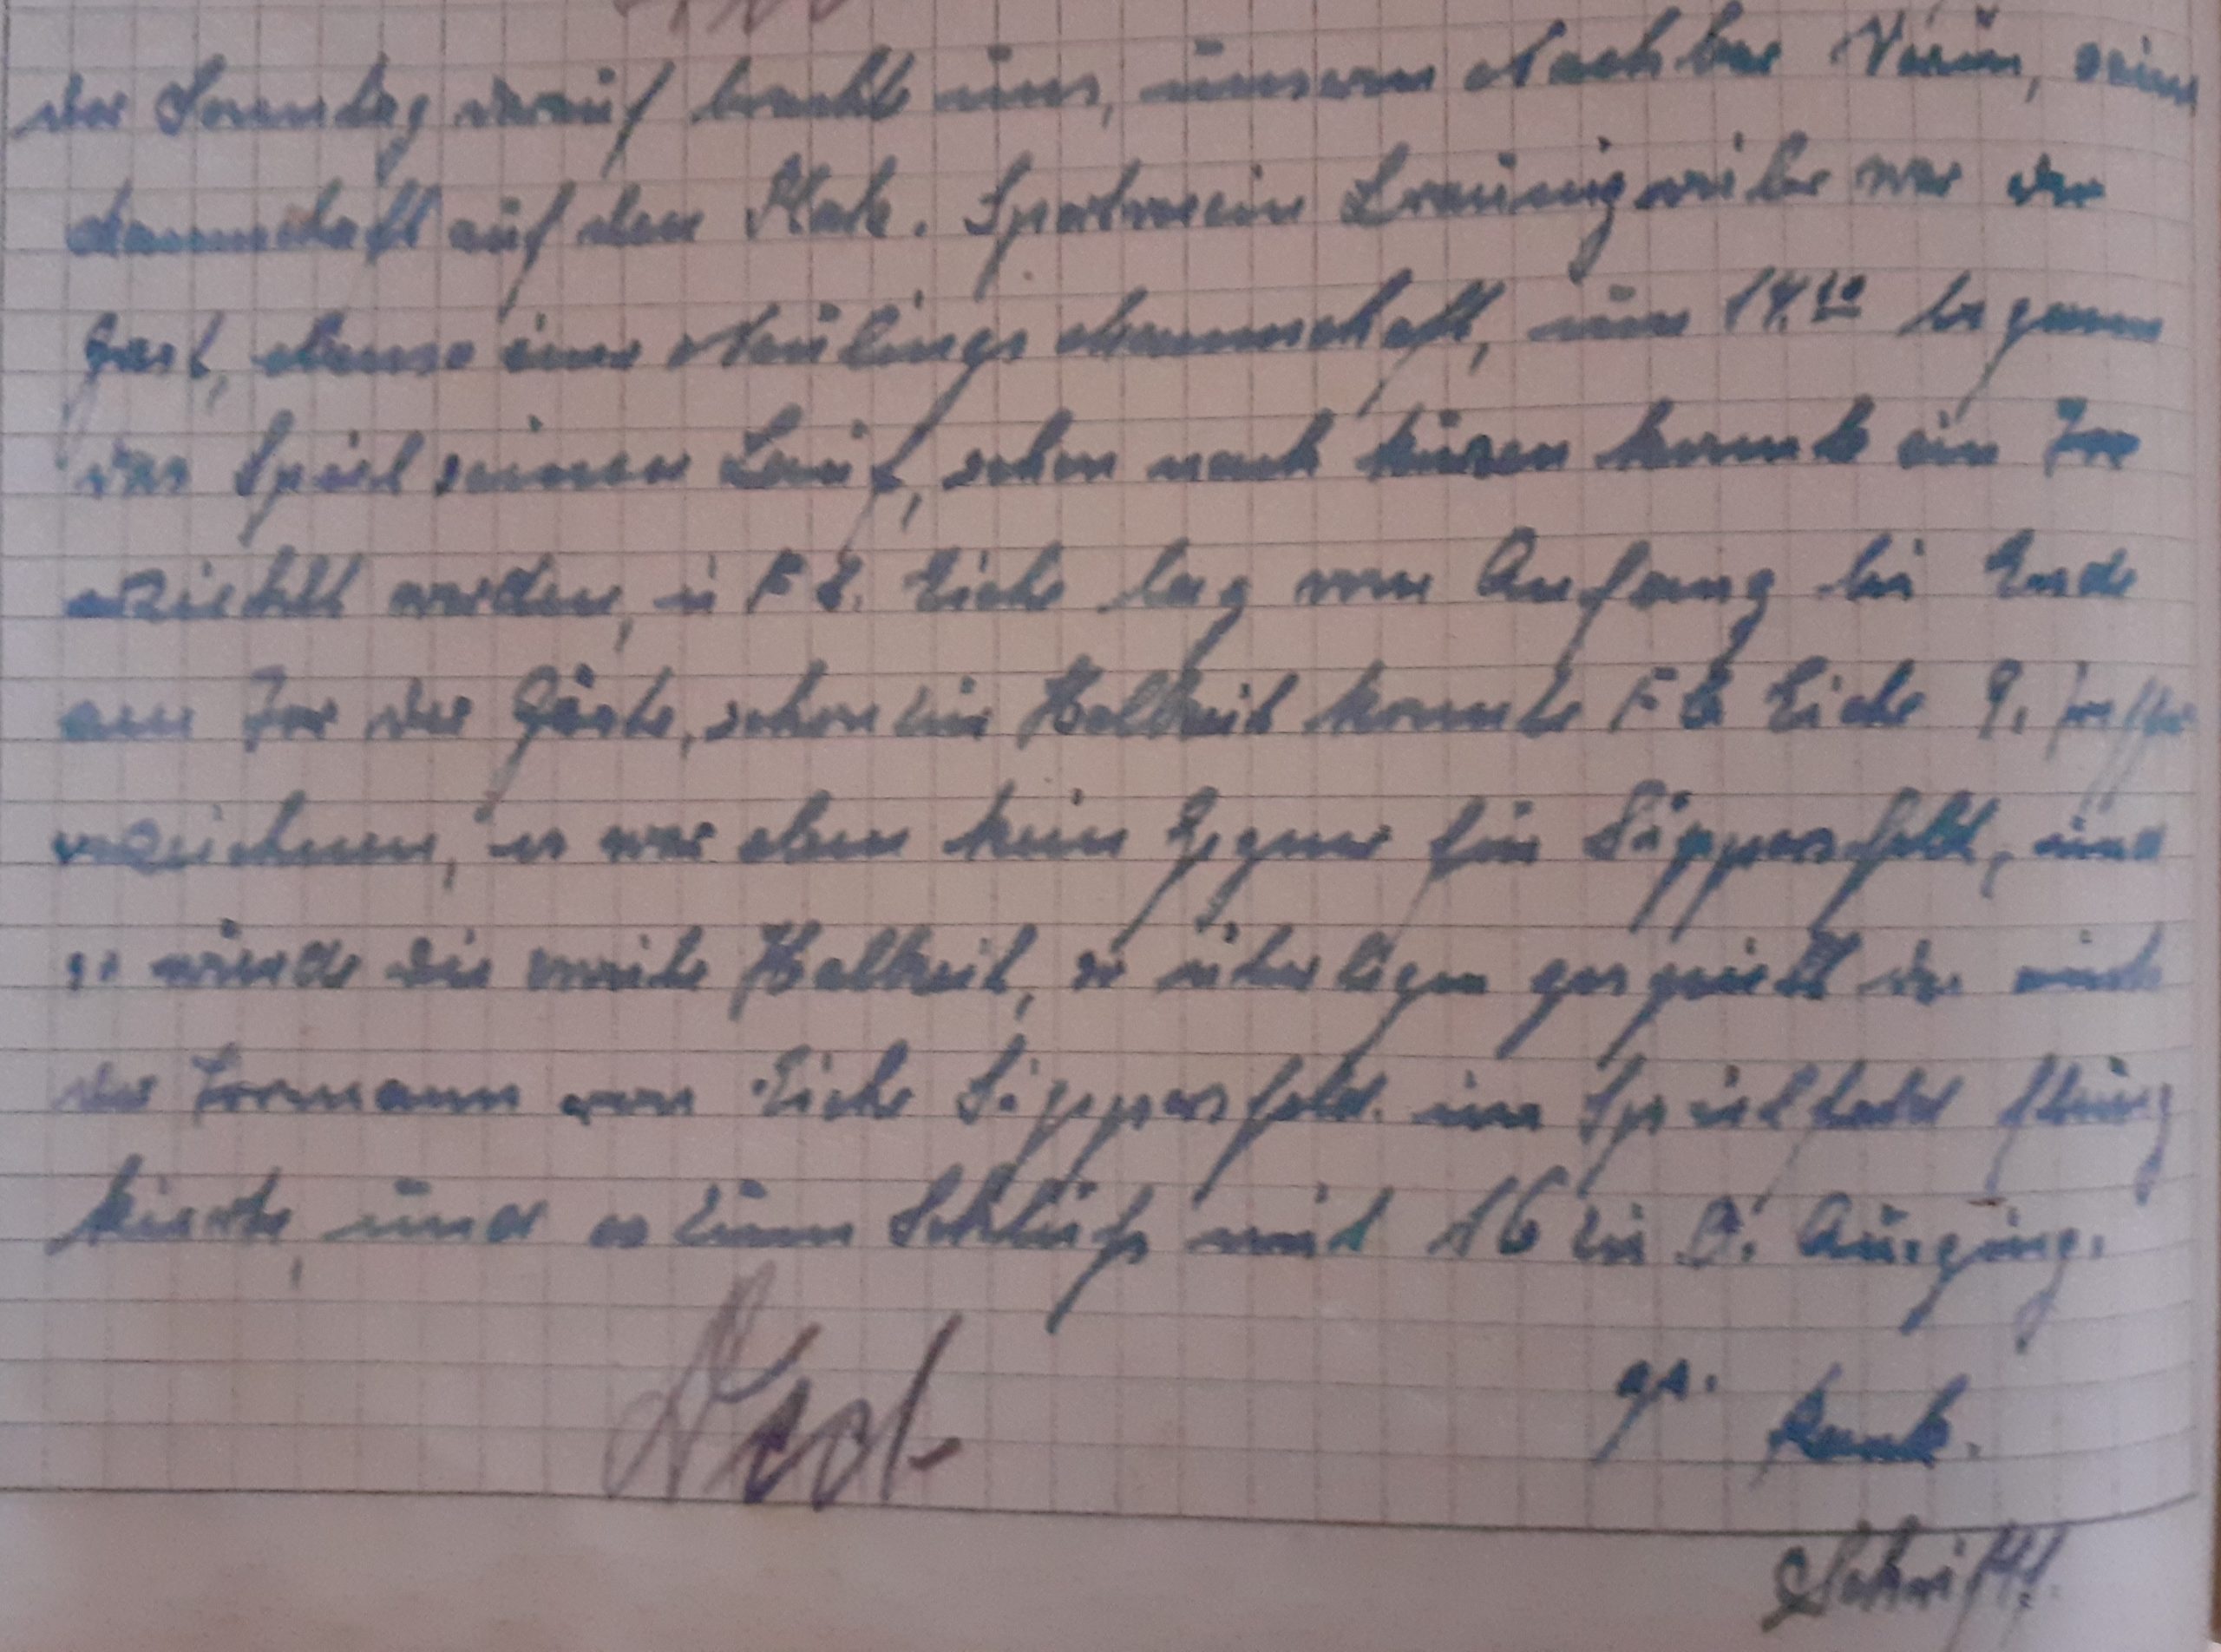 der Sonntag darauf brachte uns, unsern Nachbar Verein, seine
Mannschaft auf den Platz. Sportverein Breunigweiler war der
Gast, ebenso eine Neulings Mannschaft, um 14.10 begann
das Spiel seinen Lauf, schon nach kurzen konnte ein Tor
erziehlt werden, F.C. Eiche lag von Anfang bis Ende
am Tor der Gäste, schon bis Halbzeit konnte F C Eiche 9. Treffer
verzeichnen, es war eben kein Gegner für Sippersfeld, und
so wurde die zweite Halbzeit, so überlegen gespielt das
der Tormann von Eiche Sippersfeld im Spielfeld
und es zum Schluß mit 16 zu 0. Ausging.
gz. Kunk.
Schriftf.